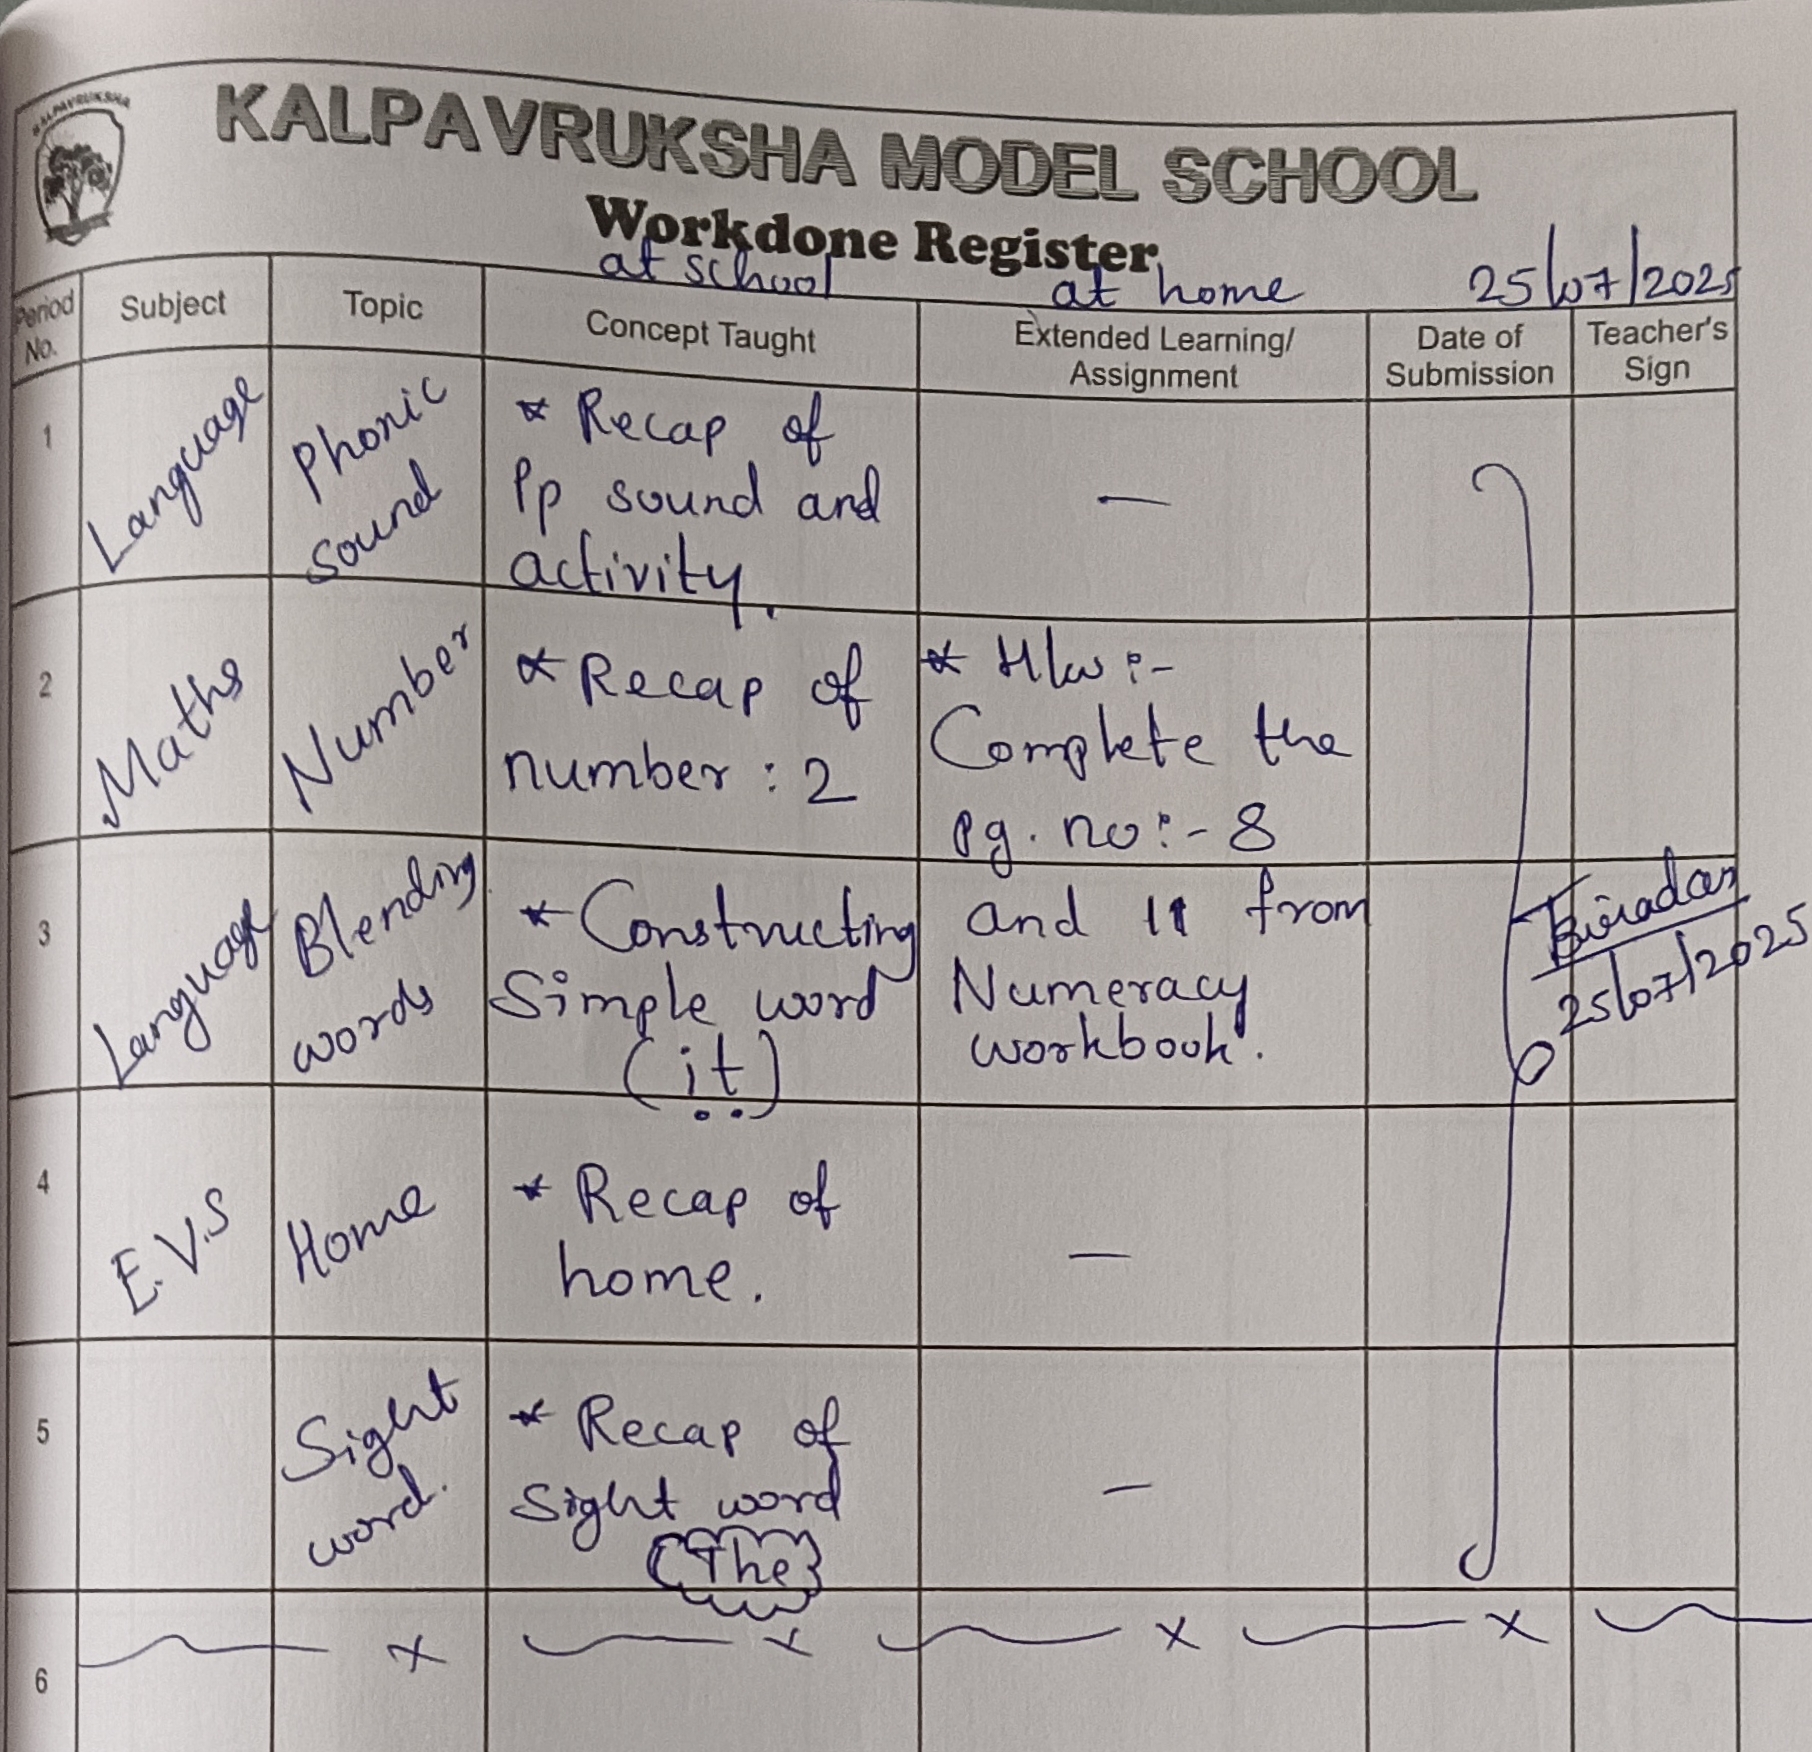 KALPAVRUKSHA
KALPAVRUKSHA MODEL SCHOOL
Workdone Register
at school
at home
25/07/2025
Period No.
Subject
Topic
Concept Taught
Extended Learning/
Assignment
Date of
Submission
Teacher's
Sign
1
Language
Phonic
sound
* Recap of
Pp sound and
activity.
—
2
Maths
Number
* Recap of
number : 2
* H/w :-
Complete the
pg. no :- 8
3
Language
Blending
words
* Constructing
Simple word
(it)
and 11 from
Numeracy
workbook.
Biradar
25/07/2025
4
E.V.S
Home
* Recap of
home.
—
5
Sight
word.
* Recap of
Sight word
(The}
—
x x x x
6